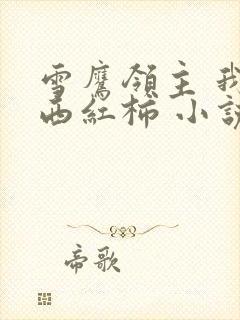 雪鷹領主 我
西紅柿 小說
帝歌